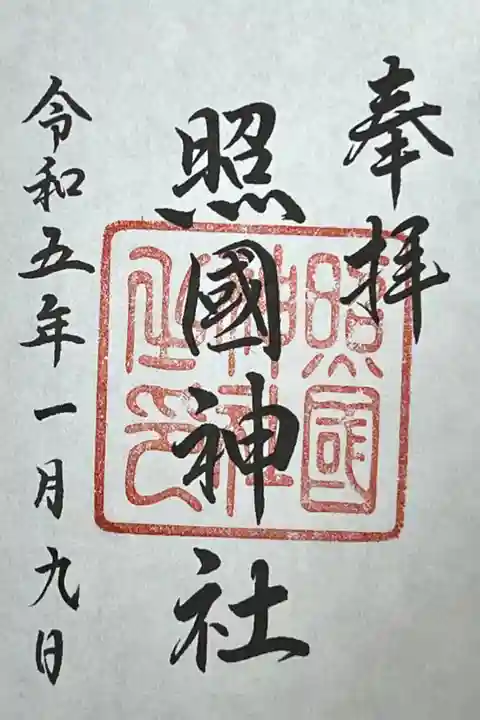 奉拝
照國神社
令和五年一月九日
照國神社之印